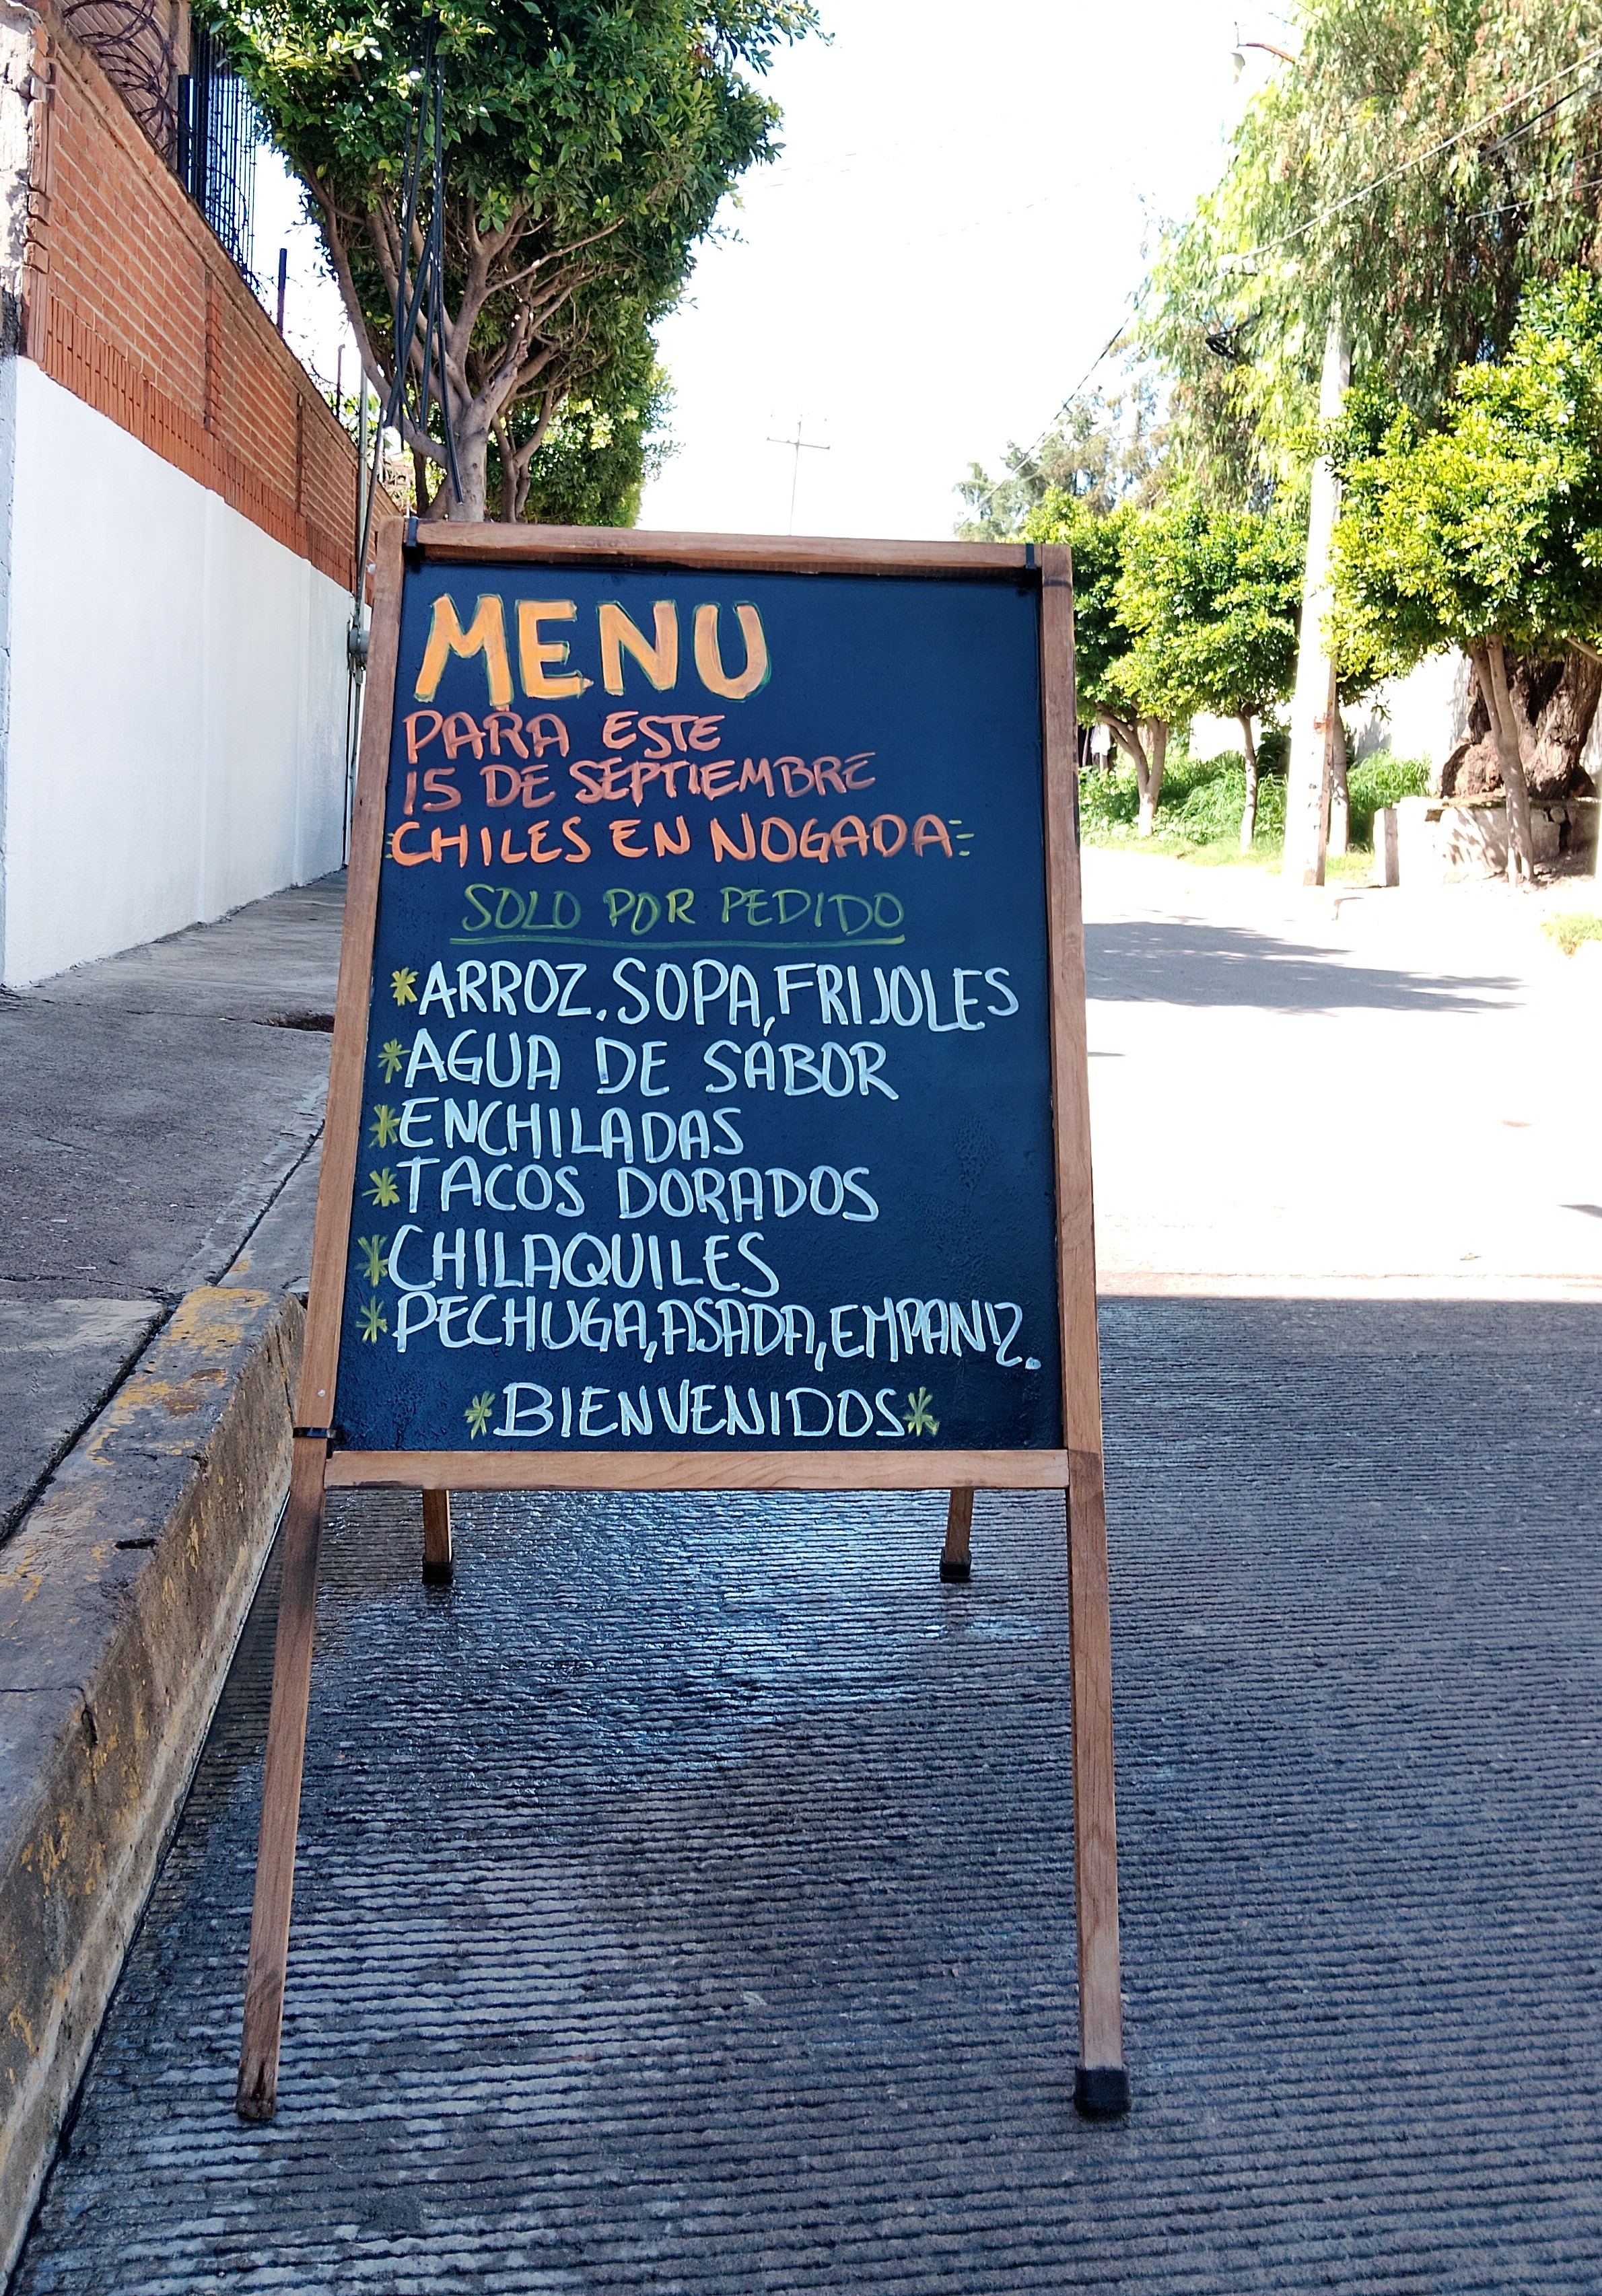 MENU
PARA ESTE
15 DE SEPTIEMBRE
CHILES EN NOGADA
SOLO POR PEDIDO
*ARROZ, SOPA, FRIJOLES
*AGUA DE SABOR
*ENCHILADAS
*TACOS DORADOS
*CHILAQUILES
*PECHUGA, ASADA, EMPANIZ.
*BIENVENIDOS*